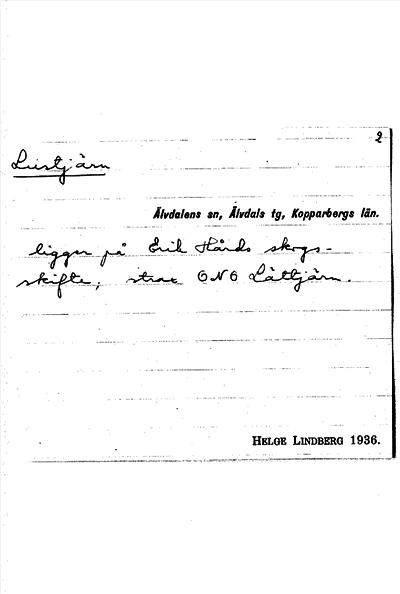 2
Listjärn
Älvdalens sn, Älvdals tg, Kopparbergs län.
ligger på Erik Hårds skogs-
skifte, strax ONO Låttjärn.
HELGE LINDBERG 1936.